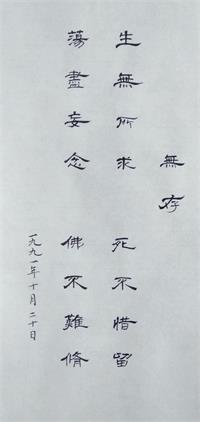 無存
生無所求　死不惜留
蕩盡妄念　佛不難脩
一九九一年十月二十日